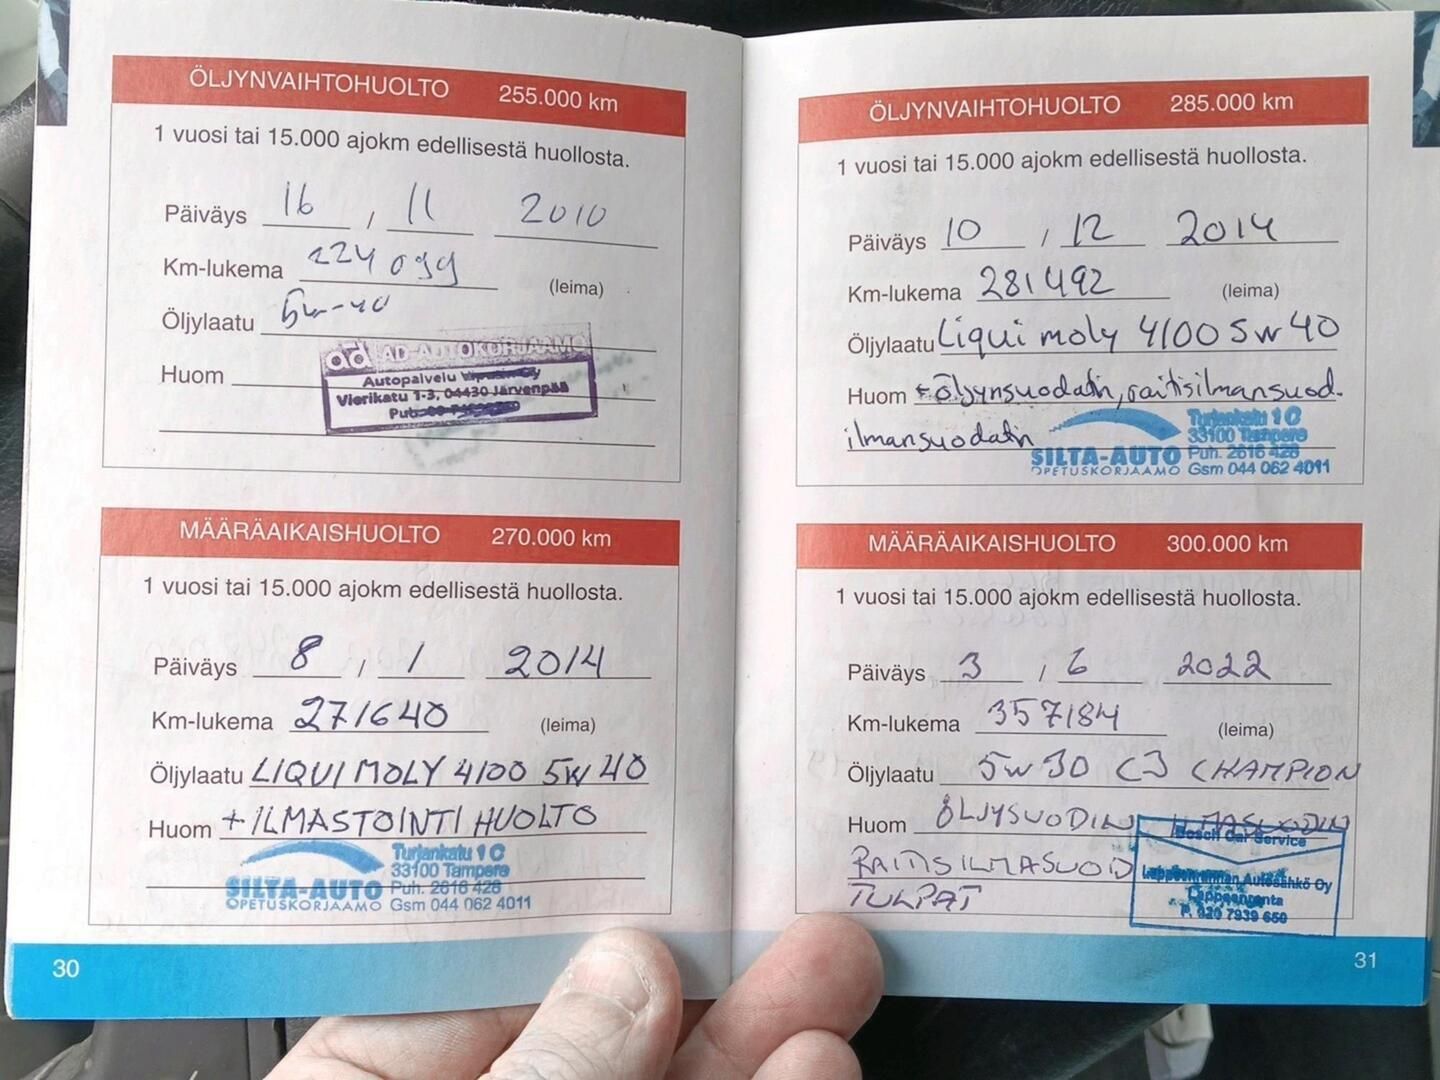 ÖLJYNVAIHTOHUOLTO 255.000 km
1 vuosi tai 15.000 ajokm edellisestä huollosta.
Päiväys 16 , 11 2010
Km-lukema 224 099
(leima)
Öljylaatu 5w-40
Huom
ad AD-AUTOKORJAAMO
Autopalvelu Oy
Vierikatu 1-3, 04430 Järvenpää
Puh.
MÄÄRÄAIKAISHUOLTO 270.000 km
1 vuosi tai 15.000 ajokm edellisestä huollosta.
Päiväys 8 , 1 2014
Km-lukema 271640 (leima)
Öljylaatu LIQUI MOLY 4100 5W40
Huom + ILMASTOINTI HUOLTO
SILTA-AUTO
OPETUSKORJAAMO
Turjankatu 1 C
33100 Tampere
Puh. 2616 428
Gsm 044 062 4011
30
ÖLJYNVAIHTOHUOLTO 285.000 km
1 vuosi tai 15.000 ajokm edellisestä huollosta.
Päiväys 10 , 12 2014
Km-lukema 281492 (leima)
Öljylaatu Liqui moly 4100 5w40
Huom + öljynsuodatin, raitisilmansuod.
ilmansuodatin
SILTA-AUTO
OPETUSKORJAAMO
Turjankatu 1 C
33100 Tampere
Puh. 2616 428
Gsm 044 062 4011
MÄÄRÄAIKAISHUOLTO 300.000 km
1 vuosi tai 15.000 ajokm edellisestä huollosta.
Päiväys 3 , 6 2022
Km-lukema 357184 (leima)
Öljylaatu 5W30 C3 CHAMPION
Huom ÖLJYSUODIN ILMASUODIN
RAITISILMASUOD
TULPAT
Bosch Car Service
Lappeenrannan Autosähkö Oy
Lappeenranta
P. 020 7939 650
31